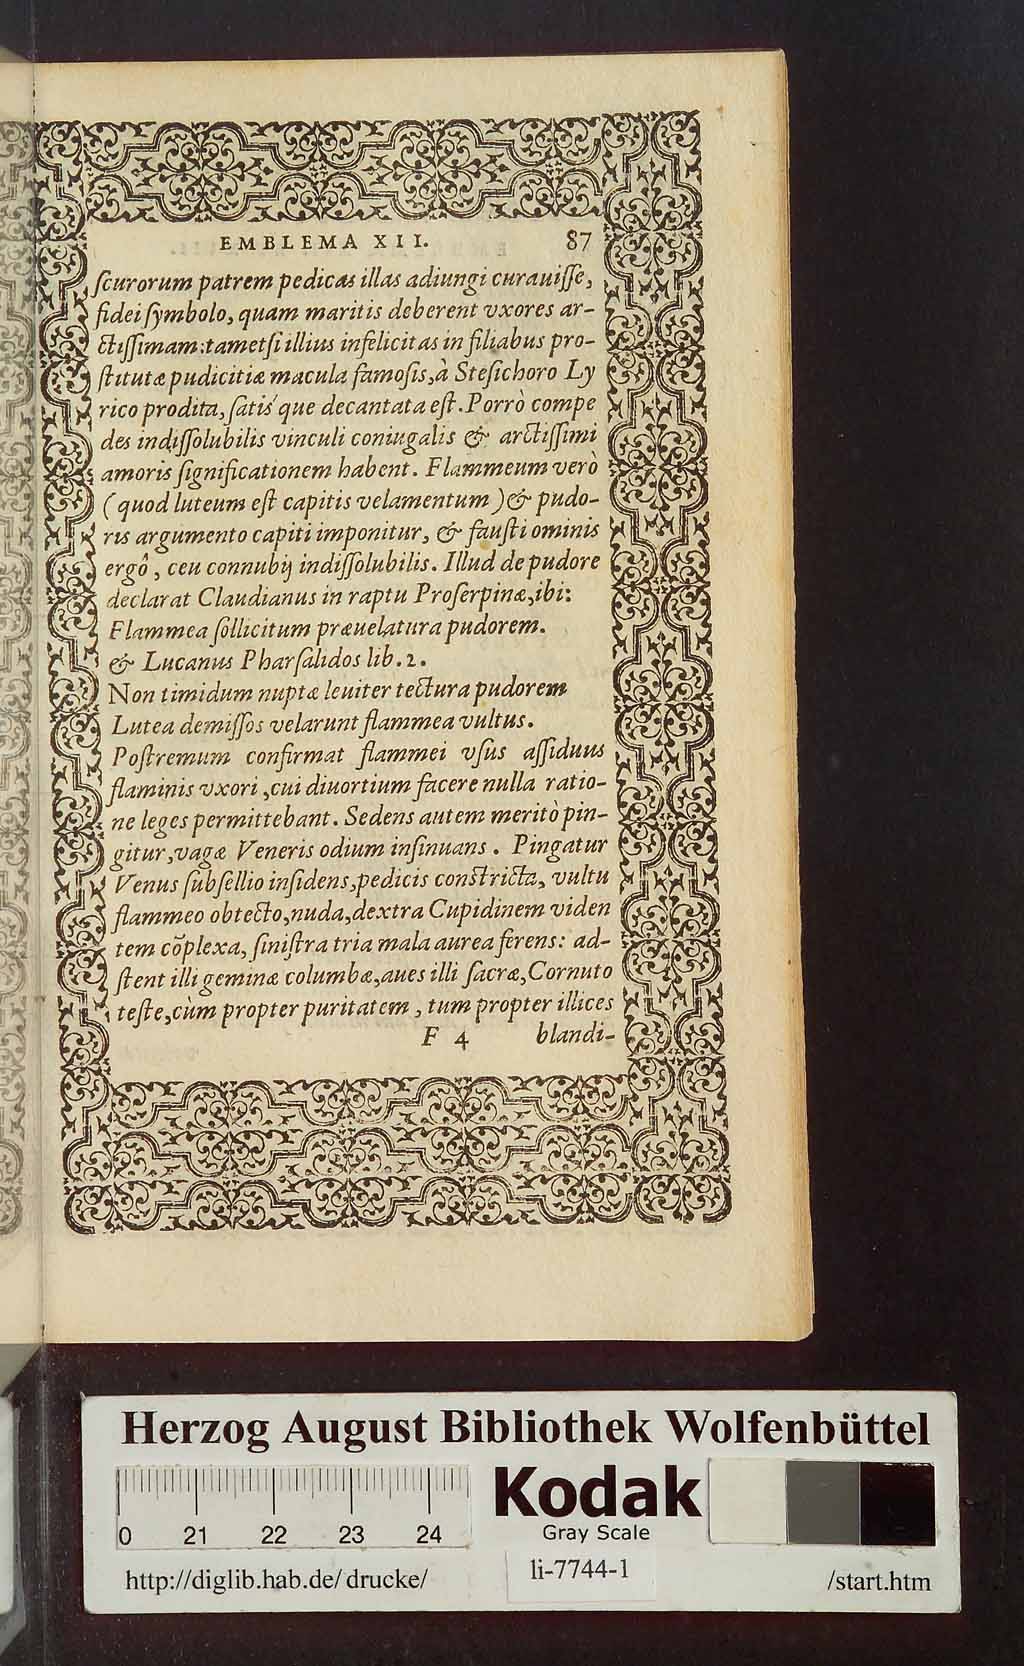 EMBLEMA XII. 87
ſcurorum patrem pedicas illas adiungi curauiſſe,
fidei ſymbolo, quam maritis deberent vxores ar-
ctiſſimam:tametſi illius infelicitas in filiabus pro-
ſtitutæ pudicitiæ macula famoſis,à Steſichoro Ly
rico prodita, ſatis´que decantata eſt. Porrò compe
des indiſſolubilis vinculi coniugalis & arctiſſimi
amoris ſignificationem habent. Flammeum verò
(quod luteum eſt capitis velamentum)& pudo-
ris argumento capiti imponitur, & fauſti ominis
ergô, ceu connubij indiſſolubilis. Illud de pudore
declarat Claudianus in raptu Proſerpinæ,ibi:
Flammea ſollicitum præuelatura pudorem.
& Lucanus Pharſalidos lib.2.
Non timidum nuptæ leuiter tectura pudorem
Lutea demiſſos velarunt flammea vultus.
Poſtremum confirmat flammei vſus aſſiduus
flaminis vxori ,cui diuortium facere nulla ratio-
ne leges permittebant. Sedens autem meritò pin-
gitur,vagæ Veneris odium inſinuans. Pingatur
Venus ſubſellio inſidens,pedicis conſtricta, vultu
flammeo obtecto,nuda,dextra Cupidinem viden
tem cõplexa, ſiniſtra tria mala aurea ferens: ad-
ſtent illi geminæ columbæ,aues illi ſacræ,Cornuto
teſte,cùm propter puritatem, tum propter illices
F 4 blandi-
Herzog August Bibliothek Wolfenbüttel
Kodak
Gray Scale
0 21 22 23 24
li-7744-1
http://diglib.hab.de/drucke/ /start.htm